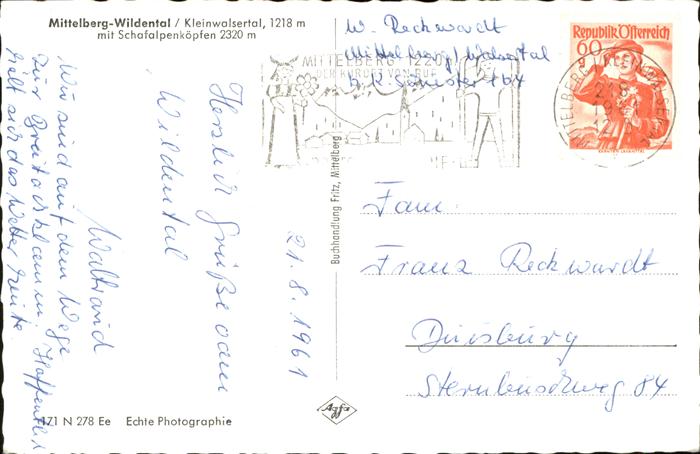 Mittelberg-Wildental / Kleinwalsertal, 1218 m
mit Schafalpenköpfen 2320 m
W. Reckwardt
Mittelberg/Walsertal
MITTELBERG 1220m
DER KURORT VON RUF
Republik Österreich
60
KÄRNTEN LAVANTTAL
21.8.
Herzlich Grüße vom
Wildental
Waltraud
Wir sind auf dem Wege
zur Breitachklamm. Hoffentlich
hält sich das Wetter heute
21.8.1961
Buchhandlung Fritz, Mittelberg
Fam.
Franz Reckwardt
Duisburg
Sternbuschweg 84
171 N 278 Ee Echte Photographie
Agfa